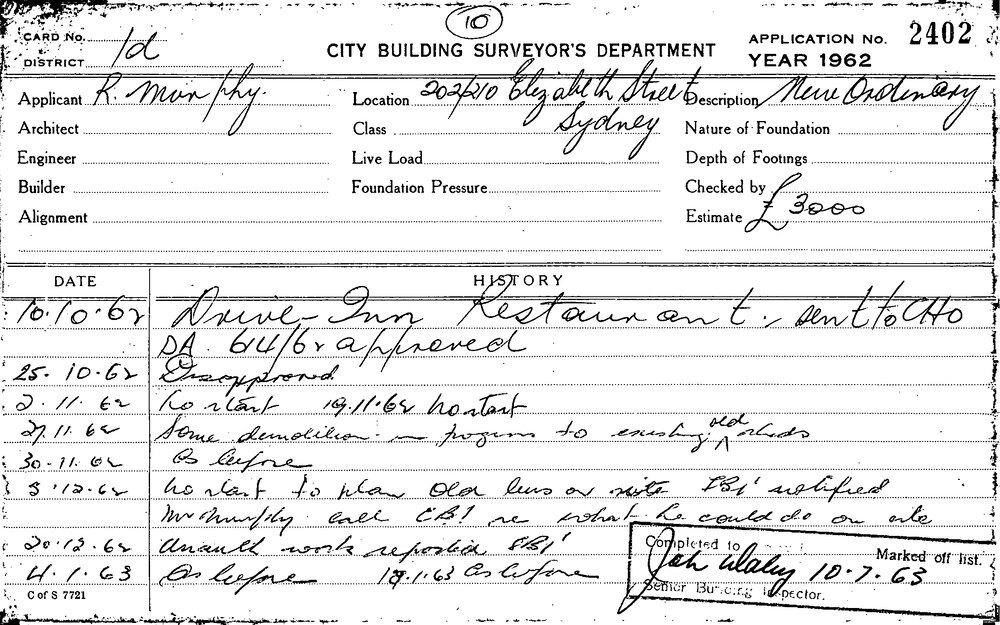 10
CARD No.
DISTRICT 1d
CITY BUILDING SURVEYOR'S DEPARTMENT
APPLICATION No. 2402
YEAR 1962
Applicant R. Murphy.
Location 202/210 Elizabeth Street
Sydney
Description New Ordinary
Architect
Class
Nature of Foundation
Engineer
Live Load
Depth of Footings
Builder
Foundation Pressure
Checked by
Alignment
Estimate £ 3000
DATE HISTORY
10.10.62 Drive-Inn Restaurant, sent to CHO
DA 614/62 approved
25.10.62 Disapproved
2.11.62 no start 19.11.62 no start
27.11.62 Some demolition in progress to existing old sheds
30.11.62 As before
3.12.62 no start to plan Old bus on site notified
Mr Murphy call CBI re what he could do on site
20.12.62 work reported
4.1.63 As before 18.1.63 As before
C of S 7721
Completed to
Marked off list.
10.7.63
Senior Building Inspector.